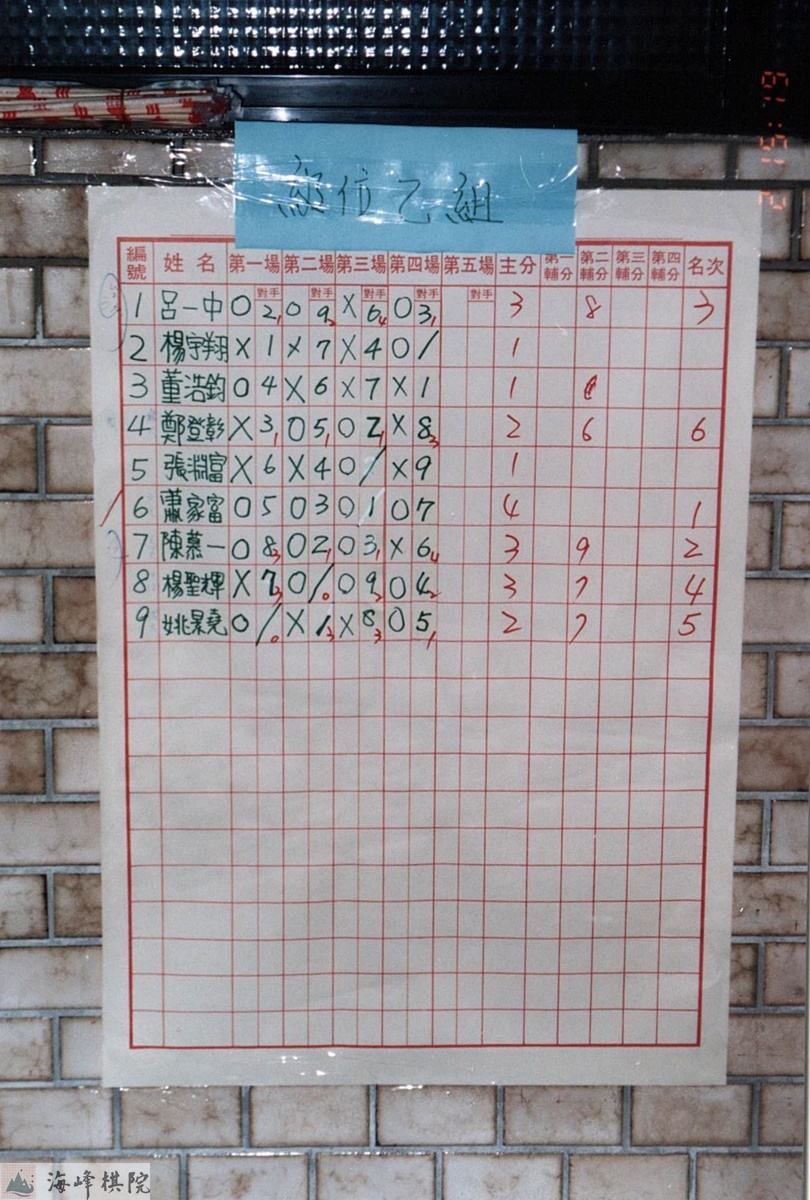 級位乙組
編號 姓名 第一場 第二場 第三場 第四場 第五場 主分 第一輔分 第二輔分 第三輔分 第四輔分 名次
對手 對手 對手 對手 對手
1 呂一中 O 2 1 O 9 2 X 6 4 O 3 1 3 8 3
2 楊宇翔 X 1 X 7 X 4 O / 1
3 董浩鈞 O 4 X 6 X 7 X 1 1
4 鄭登彰 X 3 1 O 5 1 O 2 1 X 8 3 2 6 6
5 張淵富 X 6 X 4 O / X 9 1
6 蕭家富 O 5 O 3 O 1 O 7 4 1
7 陳慕一 O 8 3 O 2 1 O 3 1 X 6 4 3 9 2
8 楊聖輝 X 7 3 O / 0 O 9 2 O 4 2 3 7 4
9 姚景堯 O / 0 X 1 3 X 8 3 O 5 1 2 7 5
海峰棋院